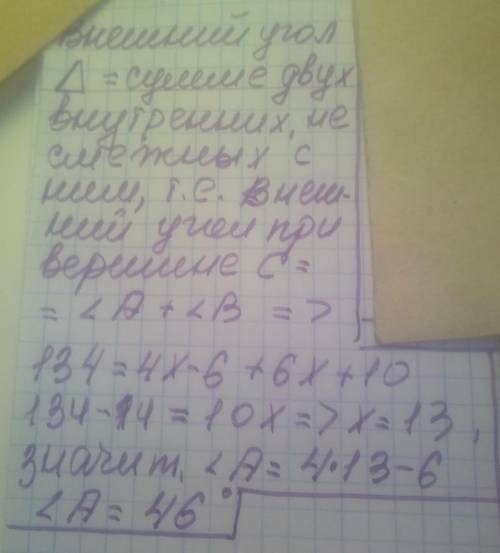 Внешний угол
Δ = сумме двух
внутренних, не
смежных с
ним, т.е. внеш-
ний угол при
вершине C =
= ∠A + ∠B =>
134 = 4x - 6 + 6x + 10
134 - 14 = 10x => x = 13,
значит, ∠A = 4·13 - 6
∠A = 46°